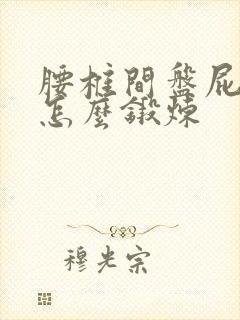 腰椎間盤屁
怎麼鍛炼
穆光宗